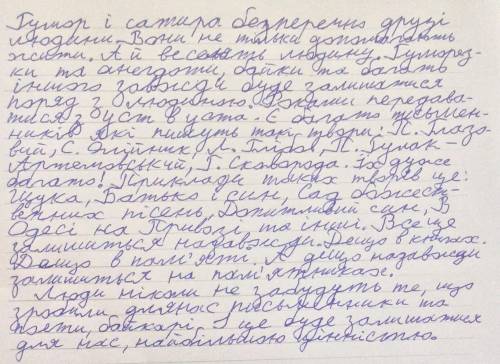 Гумор і сатира безперечно друзі
людини. Вони не тільки допомагають
жити. А й веселять людину. Гуморез-
ки та анегдоти, байки та багать
іншого завжди буде залишатися
поряд з людиною. Роками передава-
тися з уст в уста. Є багато письмен-
ників які пишуть такі твори: П. Глазо-
вий, С. Олійник, Л. Глібов, П. Гулак-
Артемовський, Г. Сковорода. Їх дуже
багато! Приклади таких творів це:
Щука, Батько і син, Сад божест-
венних пісень, Допитливий син, В
Одесі на Привозі та інші. Все це
залишиться назавжди. Дещо в книгах.
Дещо в пам'яті. А дещо назавжди
залишиться на пам'ятниках.
Люди ніколи не забудуть те, що
зробили для нас письменники та
поети, байкарі. І ще буде залишатися
для нас, найбільшою цінністю.